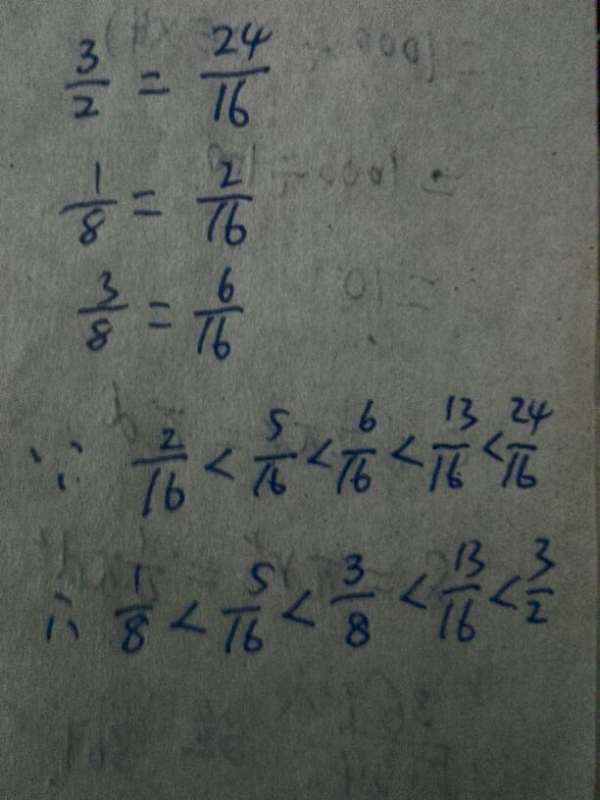 3/2 = 24/16
1/8 = 2/16
3/8 = 6/16
∵ 2/16 < 5/16 < 6/16 < 13/16 < 24/16
∴ 1/8 < 5/16 < 3/8 < 13/16 < 3/2